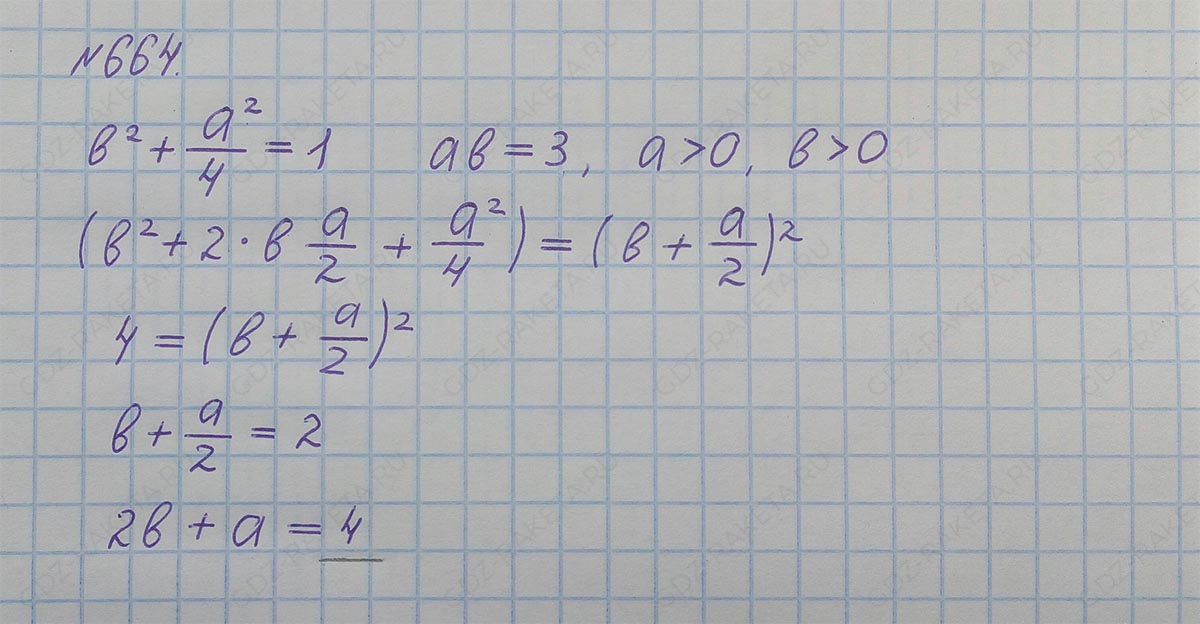 №664.
в² + a²/4 = 1   aв = 3, a > 0, в > 0
(в² + 2 · в a/2 + a²/4) = (в + a/2)²
4 = (в + a/2)²
в + a/2 = 2
2в + a = 4
GDZ-RAKETA.RU